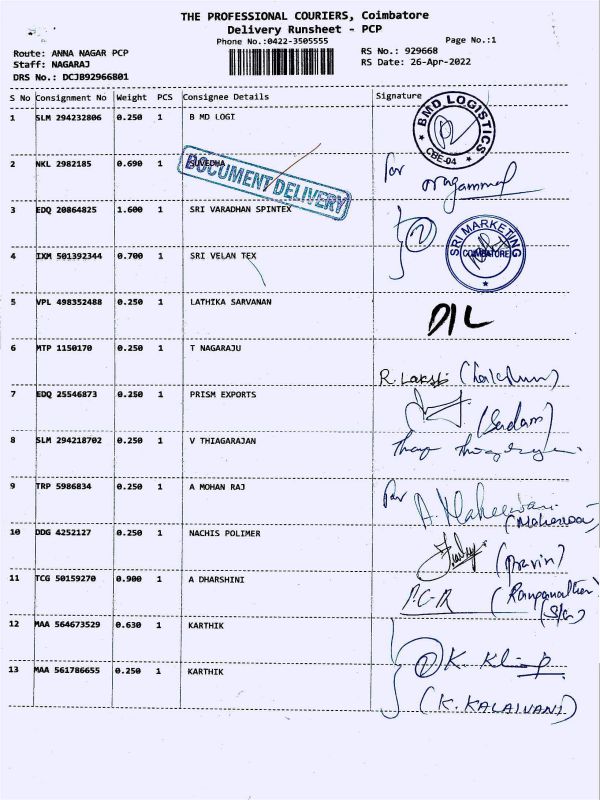 THE PROFESSIONAL COURIERS, Coimbatore
Delivery Runsheet - PCP
Phone No.:0422-3505555
Page No.:1
Route: ANNA NAGAR PCP
RS No.: 929668
Staff: NAGARAJ
RS Date: 26-Apr-2022
DRS No.: DCJB92966801
S No Consignment No Weight PCS Consignee Details Signature
1 SLM 294232806 0.250 1 B MD LOGI
BMD LOGISTICS
CBE-04
2 NKL 2982185 0.690 1 SUVEDHA
DOCUMENT DELIVERY
for
3 EDQ 20864825 1.600 1 SRI VARADHAN SPINTEX
2
SRI MARKETING
COIMBATORE
4 IXM 501392344 0.700 1 SRI VELAN TEX
5 VPL 498352488 0.250 1 LATHIKA SARVANAN
D/L
6 MTP 1150170 0.250 1 T NAGARAJU
R. Lakshi
7 EDQ 25546873 0.250 1 PRISM EXPORTS
(Sadam)
8 SLM 294218702 0.250 1 V THIAGARAJAN
9 TRP 5986834 0.250 1 A MOHAN RAJ
for A. Maheswari
10 DDG 4252127 0.250 1 NACHIS POLIMER
(Pravin)
11 TCG 50159270 0.900 1 A DHARSHINI
P.C-R
12 MAA 564673529 0.630 1 KARTHIK
2 K.
13 MAA 561786655 0.250 1 KARTHIK
(K. KALAIVANI)